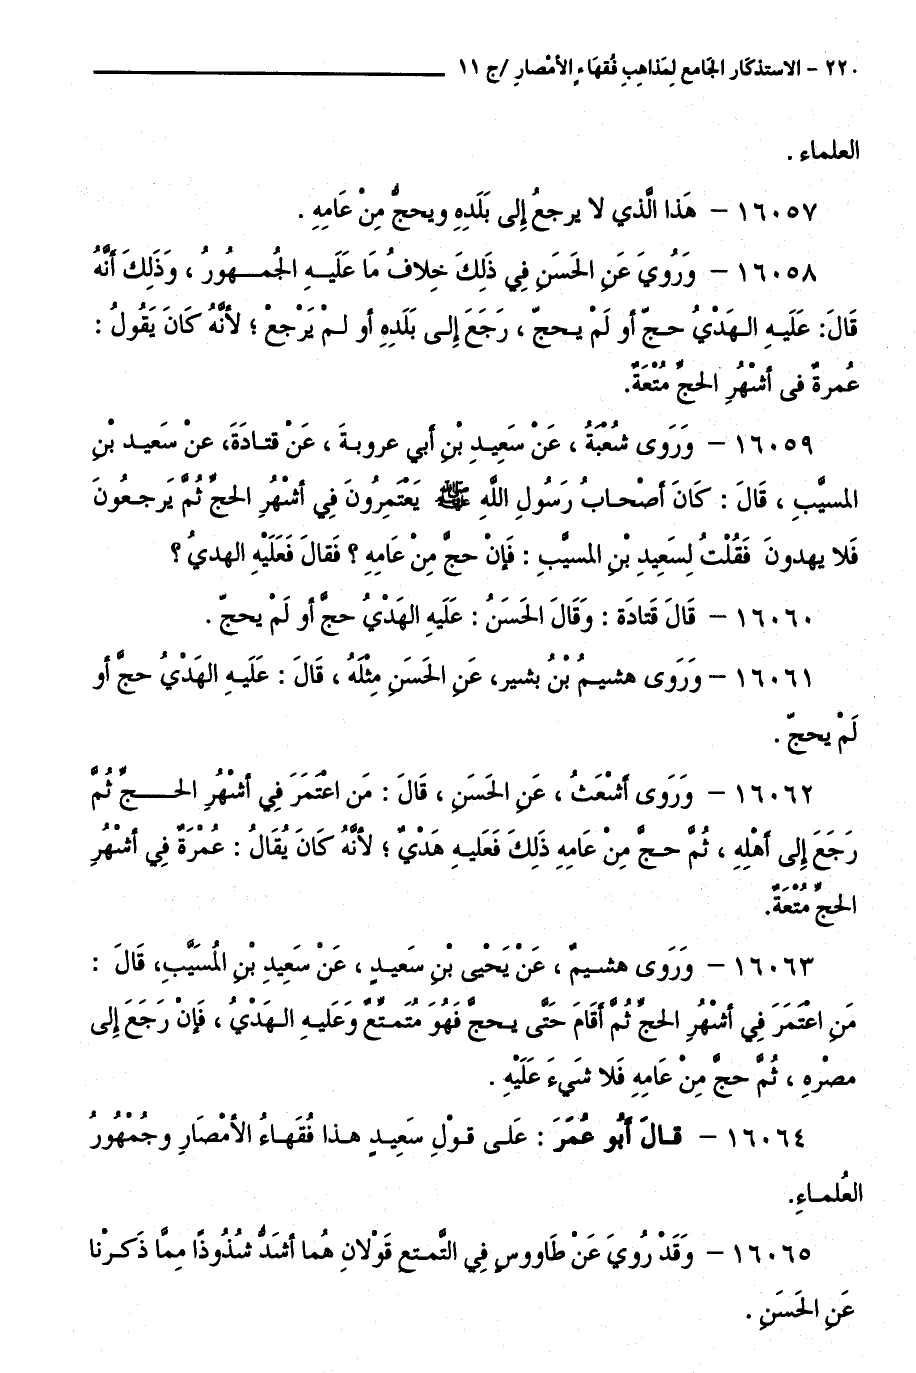 ٢٢٠ - الاستذكار الجامع لِمَذاهِبِ فُقهَاءِ الأمْصارِ /ج ١١
العلماء .
١٦٠٥٧ - هَذا الَّذي لا يرجعُ إِلى بَلَدِهِ ويحجُّ مِنْ عَامِهِ .
١٦٠٥٨ - وَرُويَ عَنِ الحَسَنِ فِي ذَلِكَ خِلافُ مَا عَلَيهِ الجُمهُورُ ، وَذَلِكَ أَنَّهُ
قَالَ: عَلَيهِ الهَدْيُ حجَّ أو لَمْ يحجّ ، رَجَعَ إِلى بَلَدِهِ أو لمْ يَرْجعْ ؛ لأنَّهُ كَانَ يَقُولُ :
عُمرةٌ فى أشْهُرِ الحجِّ مُتْعَةٌ.
١٦٠٥٩ - وَرَوى شُعْبَةُ ، عَنْ سَعِيدِ بْنِ أبي عروبةَ ، عَنْ قتادَةَ، عنْ سَعيد بْنِ
المسيَّبِ ، قَالَ : كَانَ أصْحابُ رَسُولِ اللَّهِ ﷺ يَعْتَمِرُونَ فِي أشْهُرِ الحجِّ ثُمَّ يَرجعُونَ
فَلا يهدونَ فَقُلْتُ لِسَعِيدِ بْنِ المسيَّبِ : فَإنْ حجَّ مِنْ عَامِهِ ؟ فَقالَ فَعَلَيْهِ الهديُ ؟
١٦٠٦٠ - قَالَ قَتادَة : وَقَالَ الحَسَنُ : عَلَيهِ الهَدْيُ حجَّ أو لَمْ يحجّ .
١٦٠٦١ - وَرَوَى هشيمُ بْنُ بشير، عَنِ الحَسَنِ مِثْلَهُ ، قَالَ : عَلَيهِ الهَدْيُ حجَّ أو
لَمْ يحجّ .
١٦٠٦٢ - وَرَوى أشْعَثُ ، عَنِ الحَسَنِ ، قَالَ : مَن اعْتَمَرَ فِي أشْهُرِ الحجِّ ثُمَّ
رَجَعَ إِلى أهْلِهِ ، ثُمَّ حجَّ مِنْ عَامِهِ ذَلِكَ فَعَليهِ هَدْيٌ ؛ لأنَّهُ كَانَ يُقَالُ : عُمْرَةٌ فِي أشْهُرِ
الحجِّ مُتْعَةٌ.
١٦٠٦٣ - وَرَوى هشيمٌ ، عَنْ يَحْيى بْنِ سَعيدٍ ، عَنْ سَعِيدِ بْنِ المُسَيَّبِ، قَالَ :
مَنِ اعْتَمَرَ فِي أشْهُرِ الحجِّ ثُمَّ أقَامَ حَتَّى يحجَّ فَهُوَ مُتَمتِّعٌ وَعَليهِ الهَدْيُ ، فَإنْ رَجَعَ إِلى
مصْرِهِ ، ثُمَّ حجَّ مِنْ عَامِهِ فَلا شَيءَ عَلَيْهِ .
١٦٠٦٤ - قالَ أَبُو عُمَرَ : عَلى قولِ سَعِيدٍ هذا فُقَهاءُ الأمْصَارِ وجُمْهُورُ
العُلماءِ.
١٦٠٦٥ - وَقَدْ رُويَ عَنْ طَاووسٍ فِي التَّمتعِ قَوْلانِ هُما أشَدُّ شُذُوذًا مِمَّا ذَكرْنا
عَنِ الحَسَنِ .